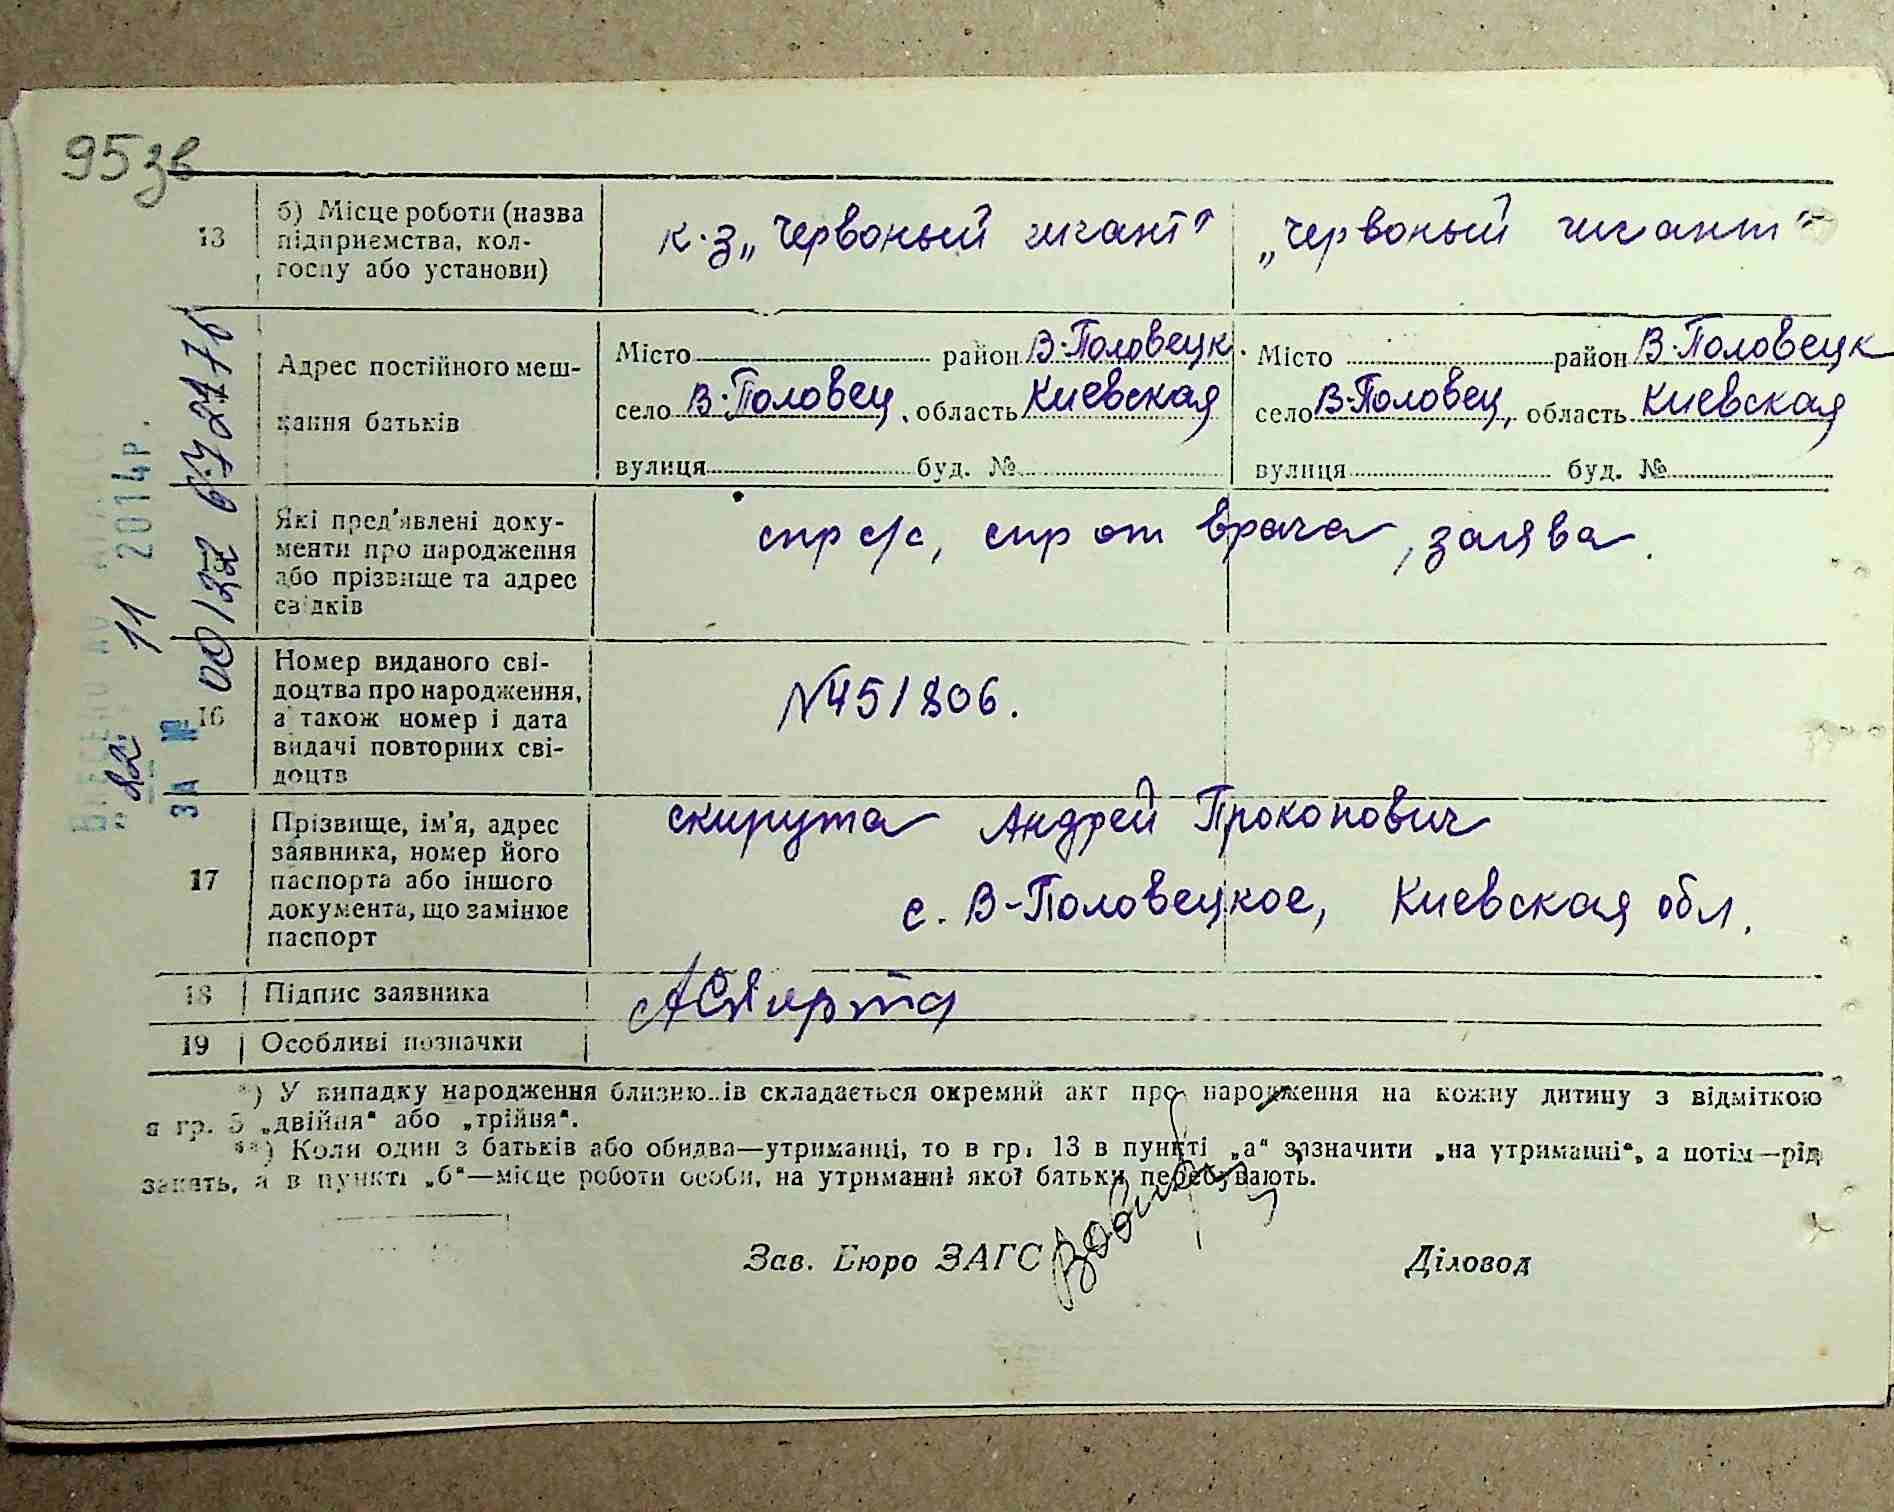 95зв
13
б) Місце роботи (назва
підприємства, кол-
госпу або установи)
к-з „Червоный гигант"
„Червоный гигант"
Адрес постійного меш-
кання батьків
Місто район В-Половецк.
село В-Половец, область Киевская
вулиця буд. №
Місто район В-Половецк
село В-Половец, область Киевская
вулиця буд. №
Які пред'явлені доку-
менти про народження
або прізвище та адрес
свідків
спр с/с, спр от врача, заява.
16
Номер виданого сві-
доцтва про народження,
а також номер і дата
видачі повторних сві-
доцтв
№451806.
17
Прізвище, ім'я, адрес
заявника, номер його
паспорта або іншого
документа, що замінює
паспорт
Скирута Андрей Прокопович
с. В-Половецкое, Киевская обл.
18
Підпис заявника
19
Особливі позначки
*) У випадку народження близню..ів складається окремий акт про народження на кожну дитину з відміткою
в гр. 5 „двійня" або „трійня".
**) Коли один з батьків або обидва—утриманці, то в гр. 13 в пункті „а" зазначити „на утриманні", а потім—рід
занять, а в пункті „б"—місце роботи особи, на утриманні якої батьки перебувають.
Зав. Бюро ЗАГС
Діловод
22 11 2014р.
ЗА №